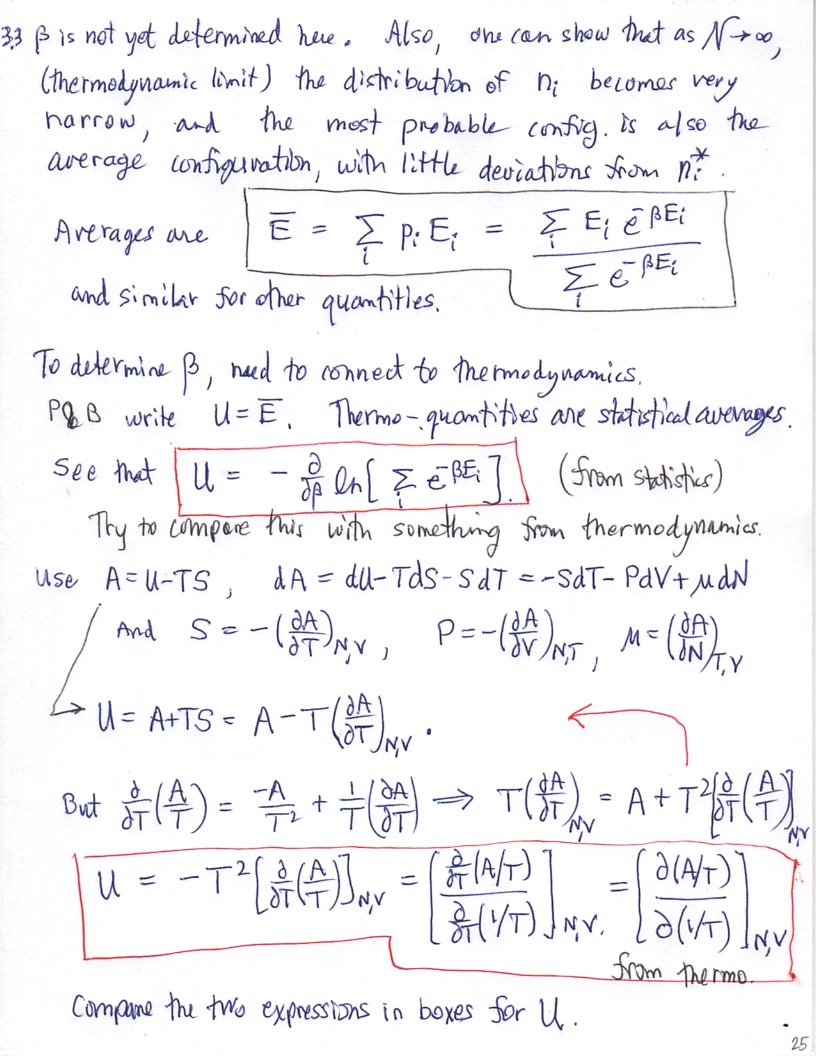 3.3 β is not yet determined here. Also, one can show that as N→∞,
(thermodynamic limit) the distribution of nᵢ becomes very
narrow, and the most probable config. is also the
average configuration, with little deviations from nᵢ*.
Averages are Ē = Σᵢ pᵢ Eᵢ = Σᵢ Eᵢ e^(-βEᵢ) / Σᵢ e^(-βEᵢ)
and similar for other quantities.
To determine β, need to connect to thermodynamics.
P&B write U = Ē. Thermo-quantities are statistical averages.
See that U = - ∂/∂β ln[ Σᵢ e^(-βEᵢ) ]. (from statistics)
Try to compare this with something from thermodynamics.
Use A = U-TS, dA = dU-TdS-SdT = -SdT-PdV+μdN
And S = -(∂A/∂T)_N,V, P = -(∂A/∂V)_N,T, μ = (∂A/∂N)_T,V
→ U = A+TS = A - T(∂A/∂T)_N,V.
But ∂/∂T(A/T) = -A/T² + 1/T(∂A/∂T) ⟹ T(∂A/∂T)_N,V = A + T²[∂/∂T(A/T)]_N,V
U = -T²[∂/∂T(A/T)]_N,V = [∂/∂T(A/T) / ∂/∂T(1/T)]_N,V. = [∂(A/T) / ∂(1/T)]_N,V
from thermo.
Compare the two expressions in boxes for U.
25